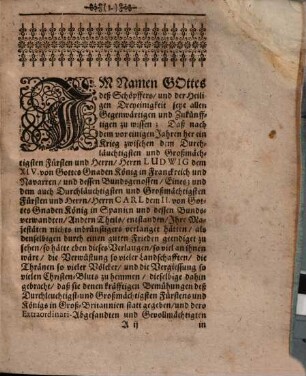 IM Namen GOttes
deß Schöpffers/ und der Heili-
gen Dreyeinigkeit seye allen
Gegenwärtigen und Zukünff-
tigen zu wissen: Daß nach
dem vor einigen Jahren her ein
Krieg zwischen dem Durch-
läuchtigsten und Großmäch-
tigsten Fürsten und Herrn/ Herrn LUDWIG dem
XIV. von Gottes Gnaden König in Franckreich und
Navarren/ und dessen Bundsgenossen/ Eines; und
dem auch Durchläuchtigsten und Großmächtigsten
Fürsten und Herrn/ Herrn CARL dem II. von Got-
tes Gnaden König in Spanien und dessen Bunds
verwandten/ Andern Theils/ entstanden/ Ihre Ma-
jestäten nichts inbrünstigers verlanget hätten/ als
denselbigen durch einen guten Frieden geendiget zu
sehen/ so hätte eben dieses Verlangen/ so viel an ihnen
wäre/ die Verwüstung so vieler Landschafften/ die
Thränen so vieler Völcker/ und die Vergiessung so
vielen Christen-Bluts zu hemmen/ dieselbige dahin
gebracht/ daß sie denen kräfftigen Bemühungen deß
Durchleuchtigst-und Großmächtigsten Fürstens und
Königs in Groß-Britannien statt gegeben/ und dero
Extraordinari-Abgesandten und Gevollmächtigten
A ij in